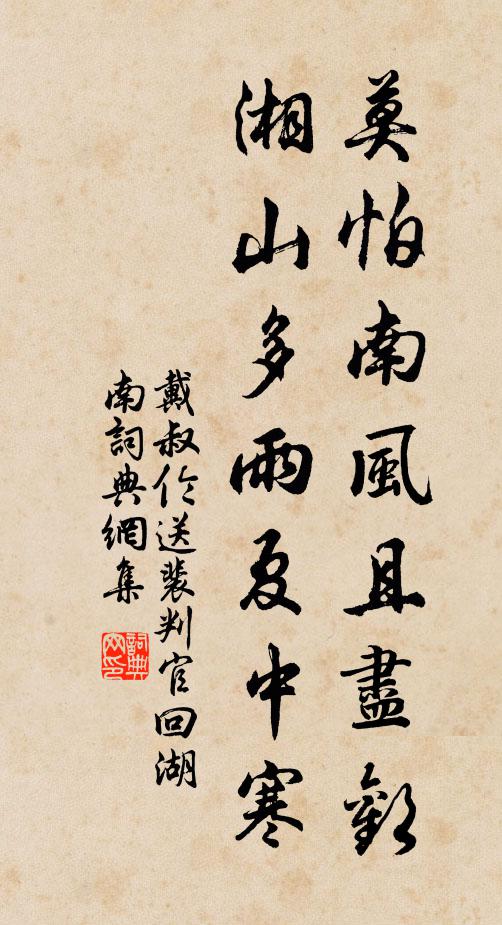 莫怕南風且盡歡
湘山多雨夏中寒
戴叔倫送裴判官回湖
南詞典網集
詞典
网印